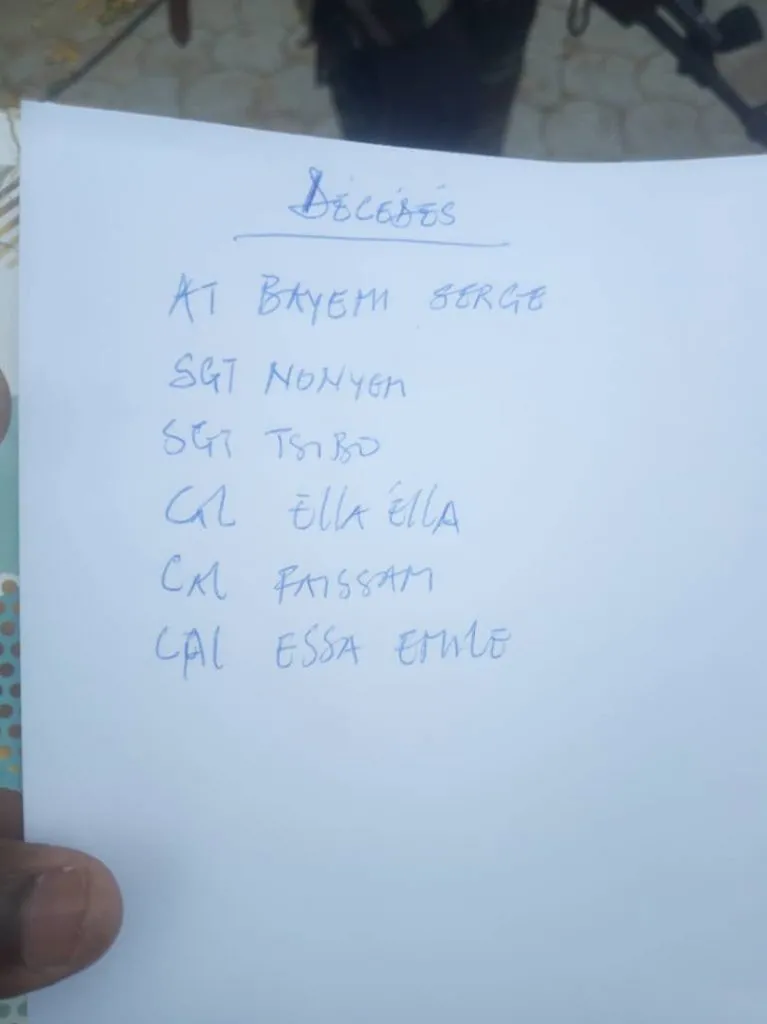 DÉCÉDÉS
AT BAYEMI SERGE
SGT NONYEM
SGT TSIBO
CAL ELLA ELLA
CAL FAISSAM
CAL ESSA EMILE